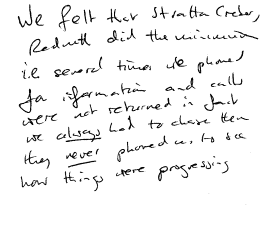 We felt that Stratton Creber,
Redruth did the minimum
i.e several times we phoned
for information and calls
were not returned in fact
we always had to chase them
they never phoned us to see
how things were progressing